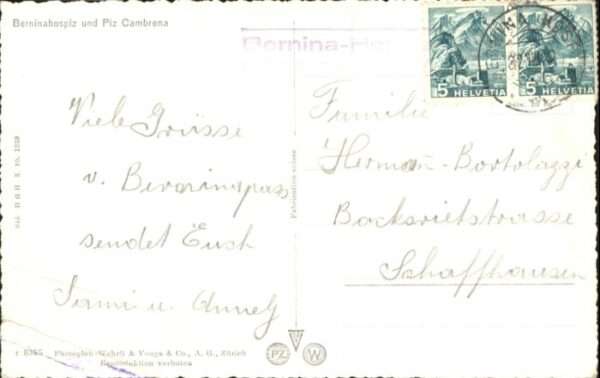 Berninahospiz und Piz Cambrena
Bernina-Ho
5 HELVETIA 5 HELVETIA
Viele Grüsse
v. Berninapass
sendet Euch
Sami u. Annely
Familie
Hermann-Bortolazzi
Bocksrietstrasse
Schaffhausen
Fabrication suisse
Photoglob-Wehrli & Vouga & Co., A. G., Zürich
Reproduktion verboten
PZ W